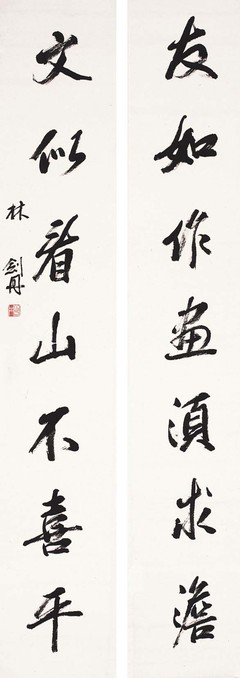 友如作画須求澹
文似看山不喜平
林剑丹